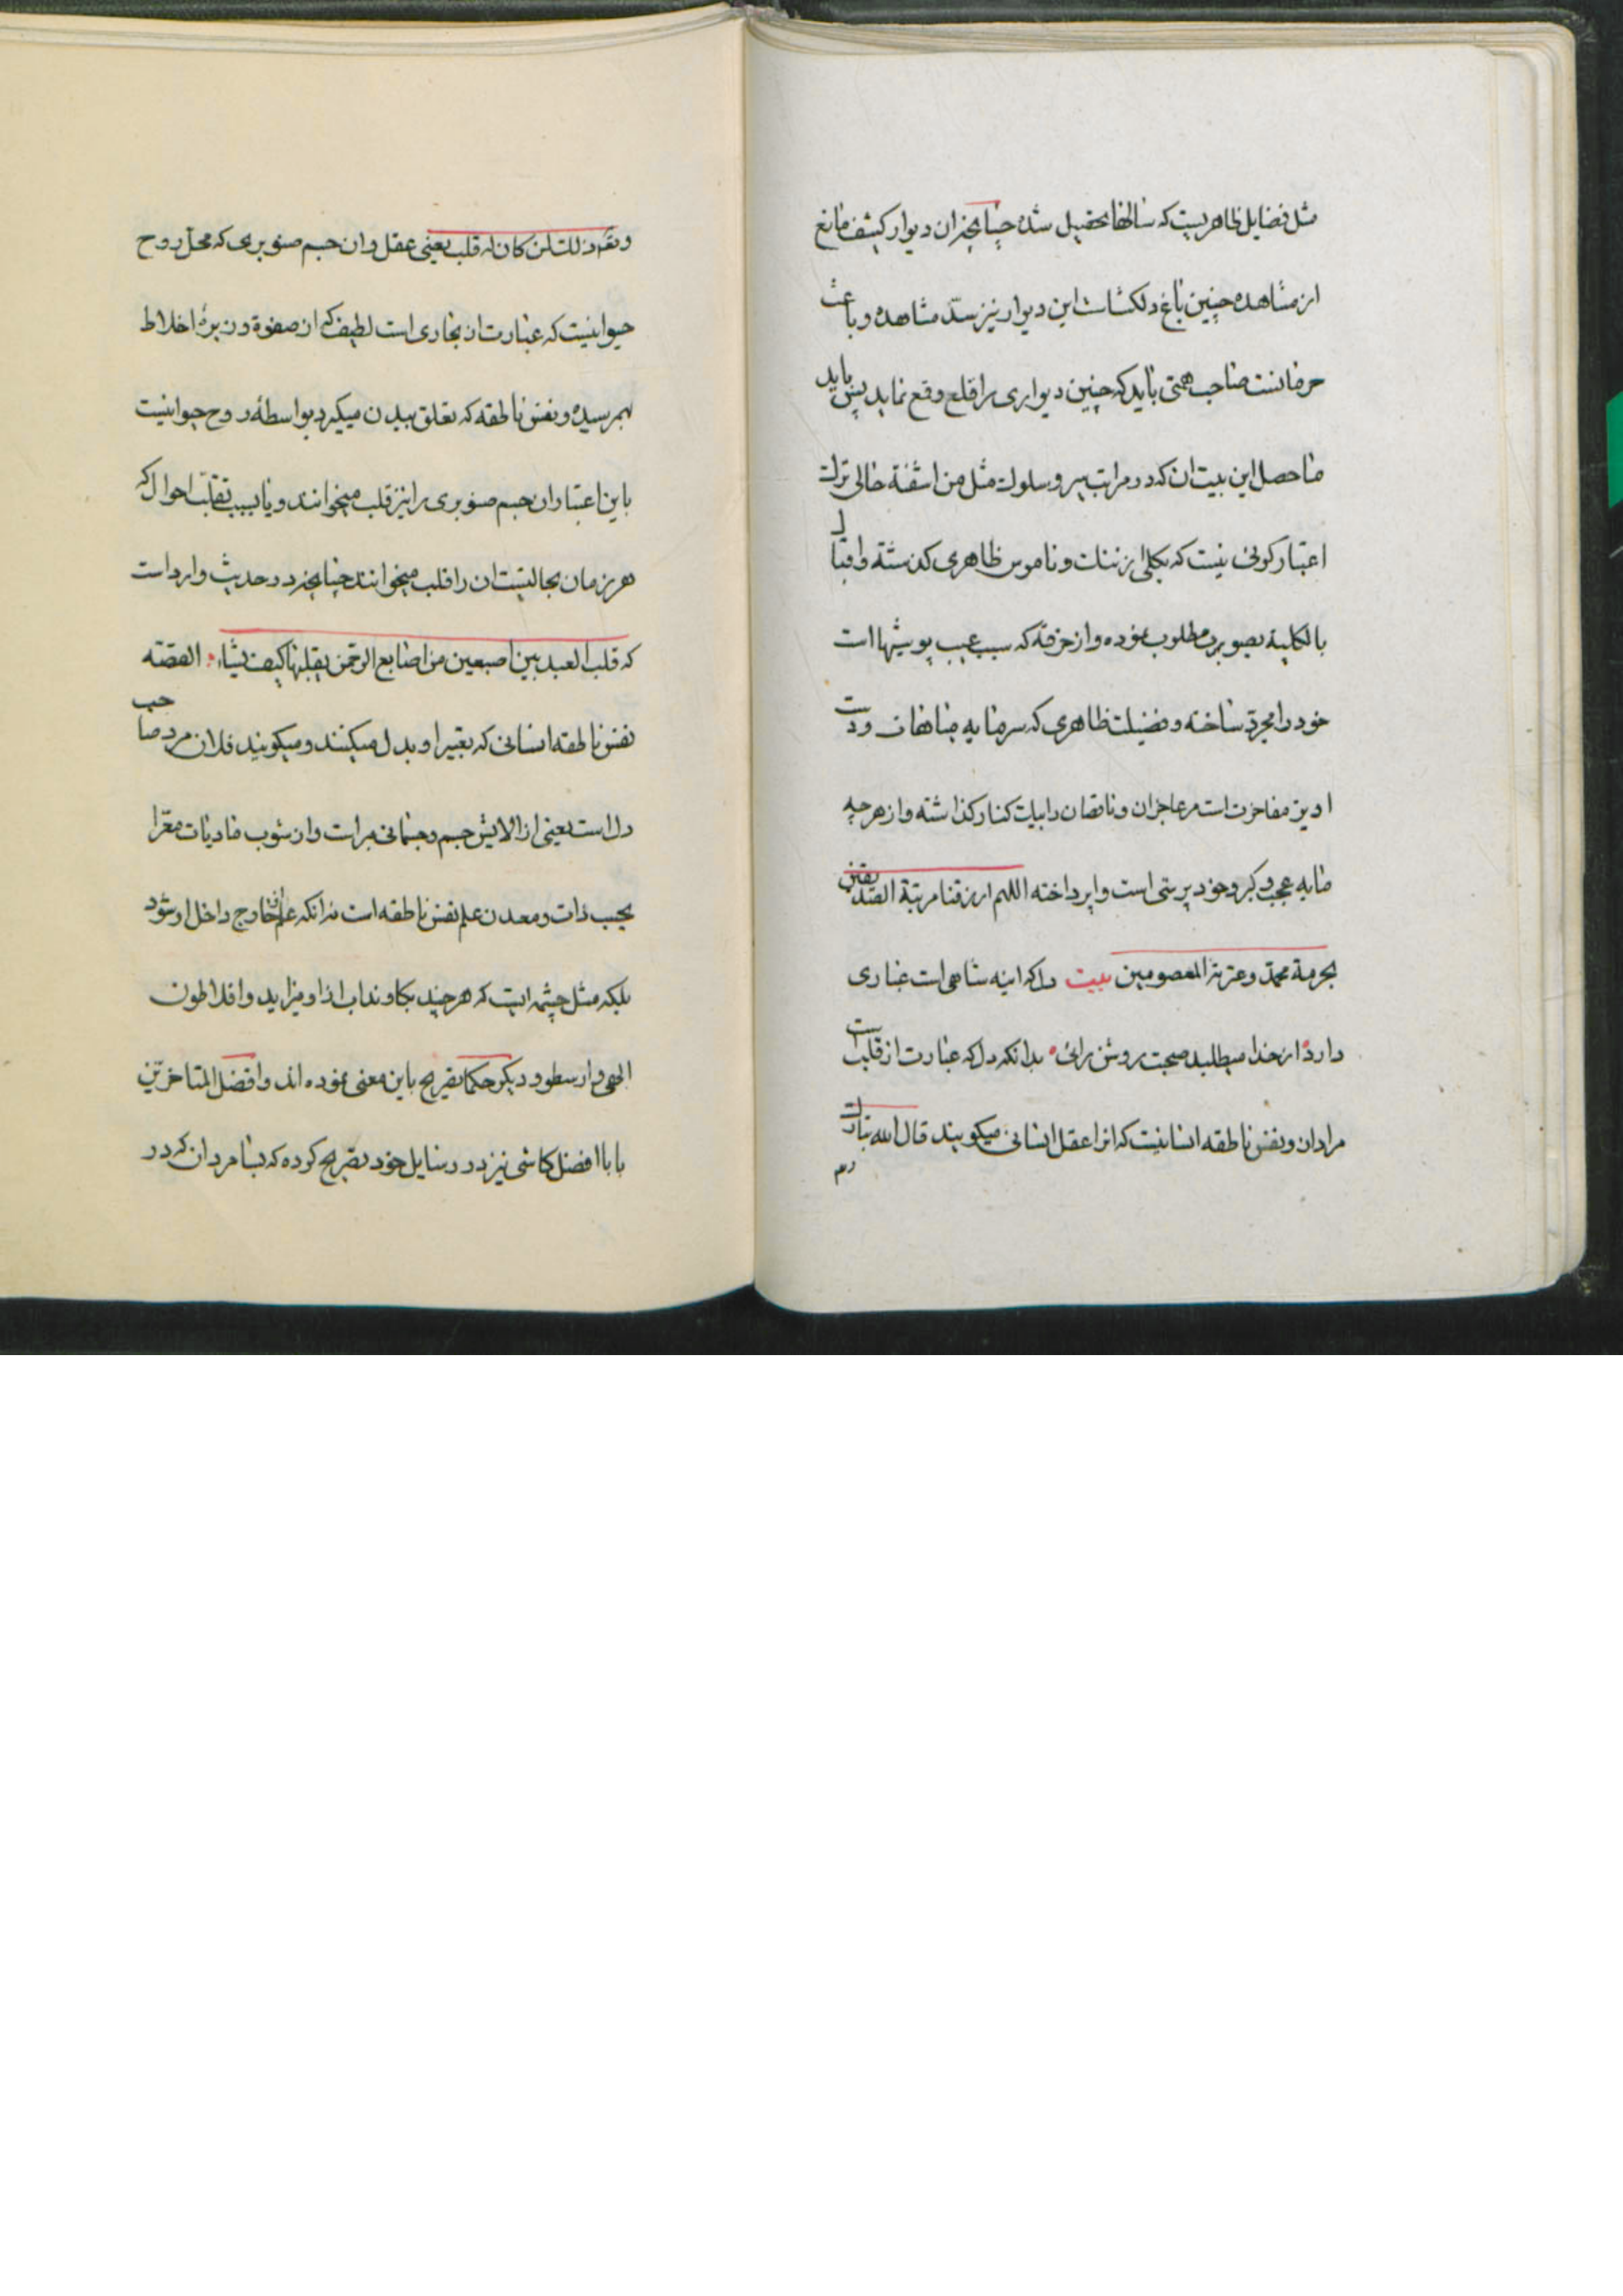 مثل فضایل ظاهریست که سالها تحصیل شده چنانچه ان دیوار کثیف مانع
از مشاهده چنین باغ دلکشاست این دیوار نیز سدّ مشاهده و باعث
حرمانست صاحب همتی باید که چنین دیواری را قلع و قمع نماید پس باید
ماحصل این بیت ان که در مراتب سیر و سلوک مثل من اشفته حالی ترک
اعتبار کونی نیست که بکلی از ننک و ناموس ظاهری کذشته و اقبال
بالکلیه بصوبه مطلوب نموده و از خرقه که سبب عیب پوشیها است
خود را مجرد ساخته و فضیلت ظاهری که سرمایه مباهات و دست
اویز مفاخرت است مر عاجزان و ناقصان را بیک کنار کذاشته و از هر چه
مایه عجب و کبر و خود پرستی است واپرداخته اللهم ارزقنا مرتبة الصدیقین
بحرمة محمد و عترته المعصومین بیت دل که اینه شاهی است غباری
دارد از خدا میطلبد صحبت روشن رائی بدانکه دل که عبارت از قلب است
مراد ان و نفس ناطقه انسانیست که انرا عقل انسانی میکویند قال الله تبارک
وتع
و تع ان فی ذلک لمن کان له قلب یعنی عقل و ان جسم صنوبری که محل روح
حیوانیست که عبارت از بخاری است لطیف که از صفوة و زبدهٔ اخلاط
بهم رسیده و نفس ناطقه که تعلق ببدن میکیرد بواسطهٔ روح حیوانیست
باین اعتبار ان جسم صنوبری را نیز قلب میخوانند و یا بسبب تقلب احوال که
هر زمان بحالتیست ان را قلب میخوانند چنانچه در حدیث وارد است
که قلب العبد بین اصبعین من اصابع الرحمن یقلبها کیف یشاء القصه
نفس ناطقه انسانی که تعبیر او بدل میکنند و میکویند فلان مرد صاحب
دل است یعنی از الایش جسم و جسمانی مبراست و از شوب مادیات معرّا
بحسب ذات و معدن علم نفس ناطقه است نه انکه علم از خارج داخل او شود
بلکه مثل چشمه ایست که هر چند بکاوند اب از او میزاید و افلاطون
الهی و ارسطو و دیکر حکما تصریح باین معنی نموده اند و افضل المتاخرین
بابا افضل کاشی نیز در رسایل خود تصریح کرده که بسا مردان که در